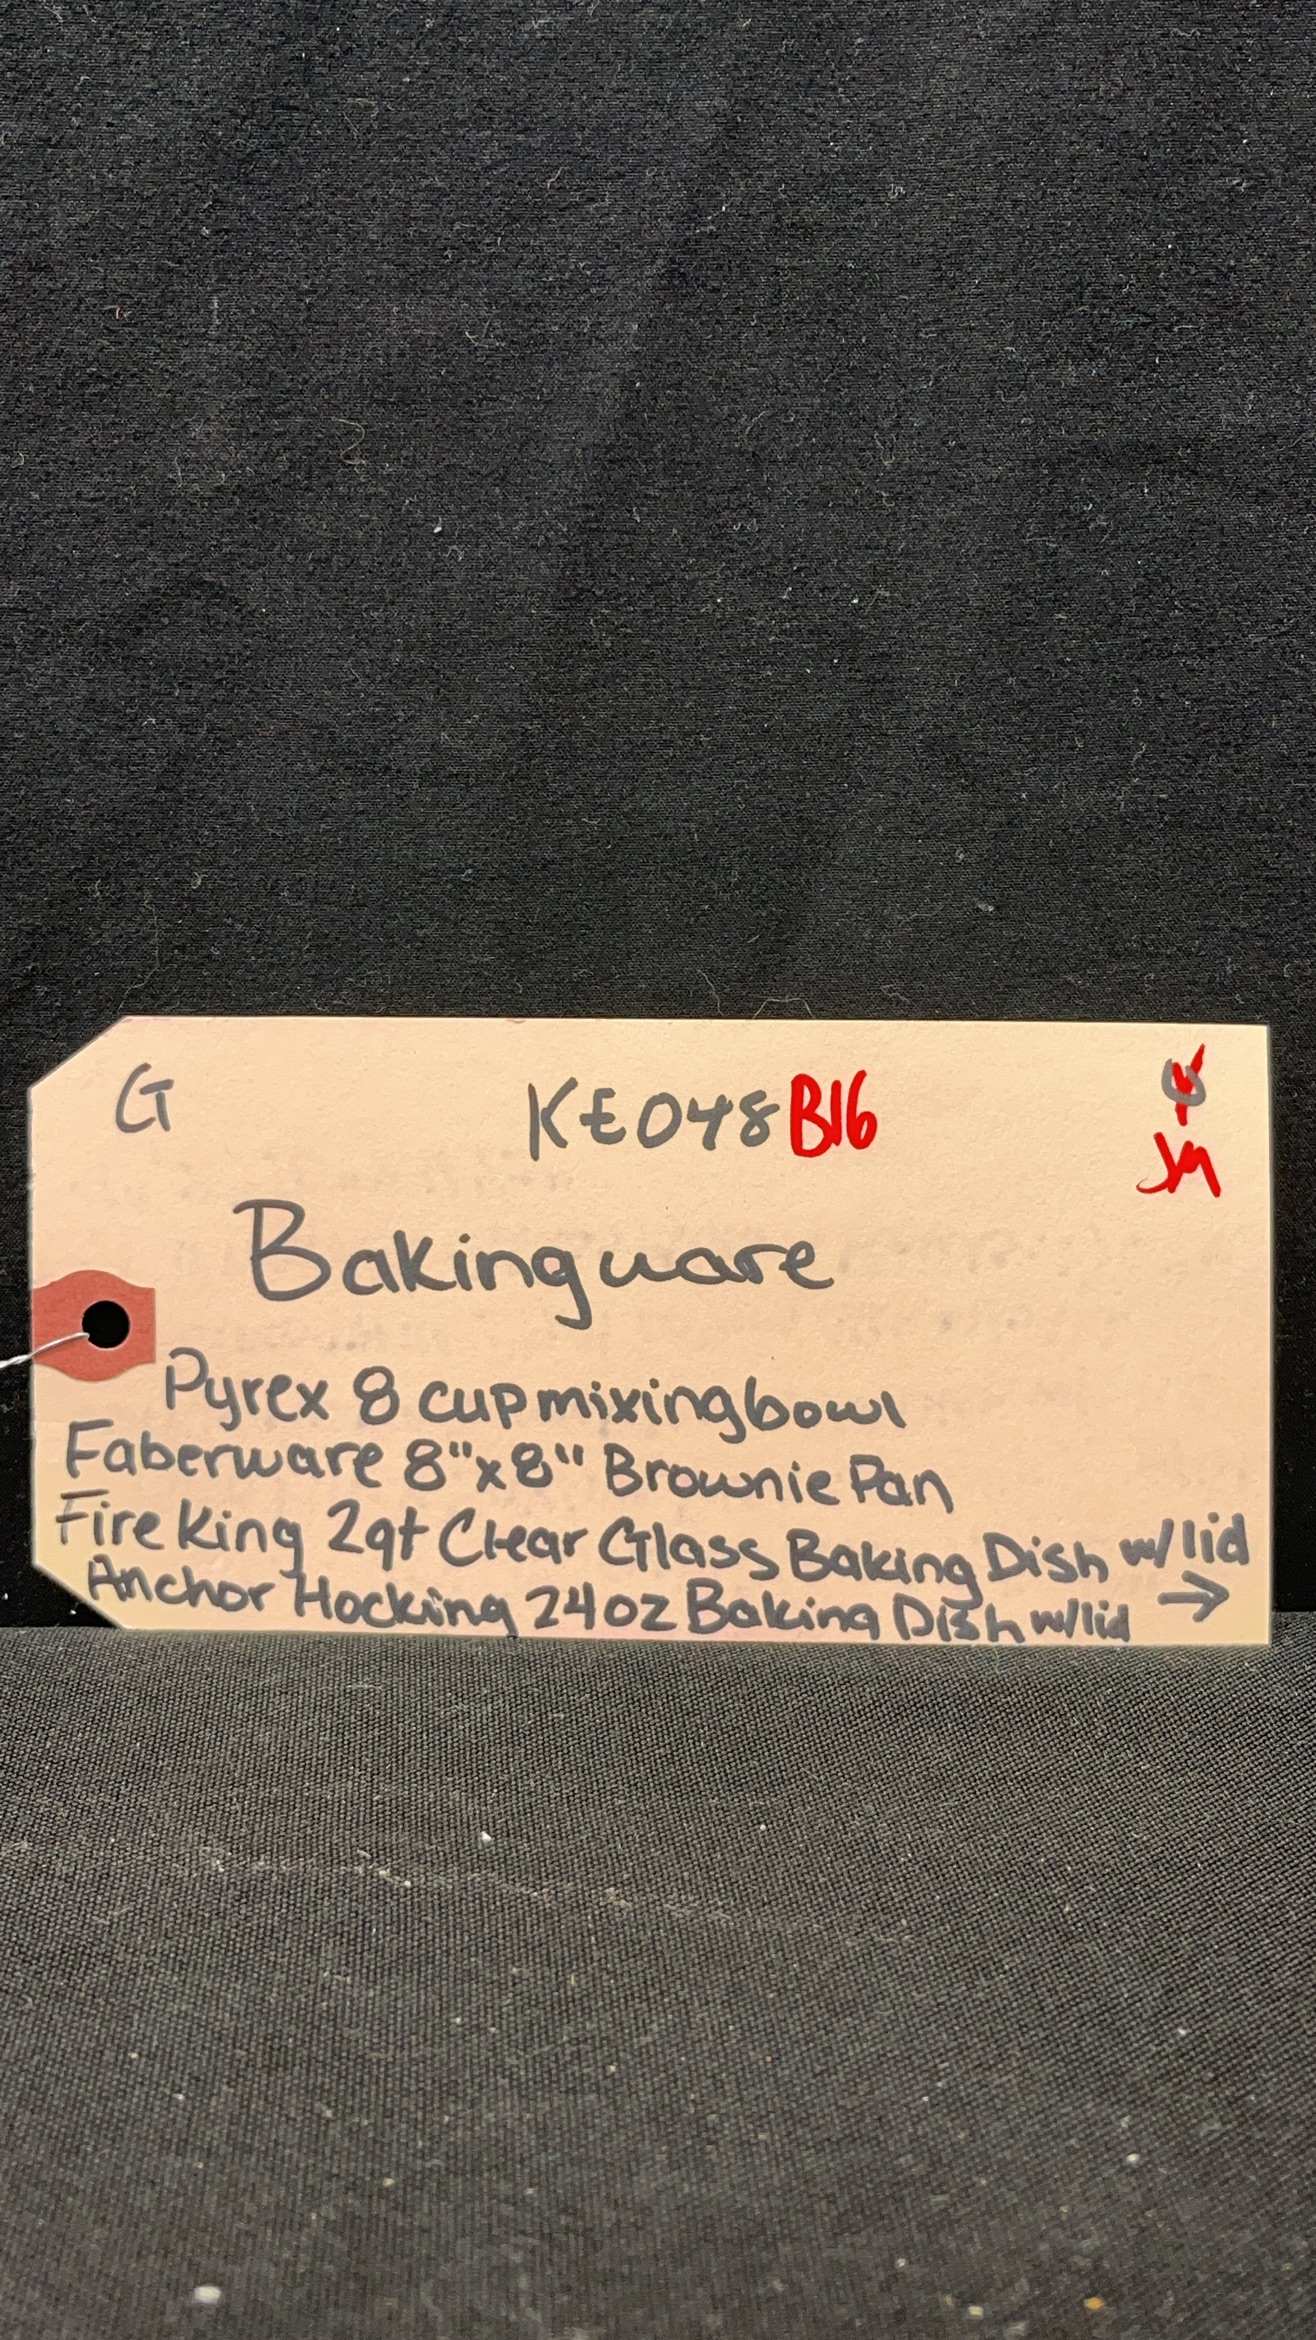 G KE048B16
JM
Bakingware
Pyrex 8 cup mixing bowl
Faberware 8"x8" Brownie Pan
Fire King 2qt Clear Glass Baking Dish w/lid
Anchor Hocking 24oz Baking Dish w/lid →